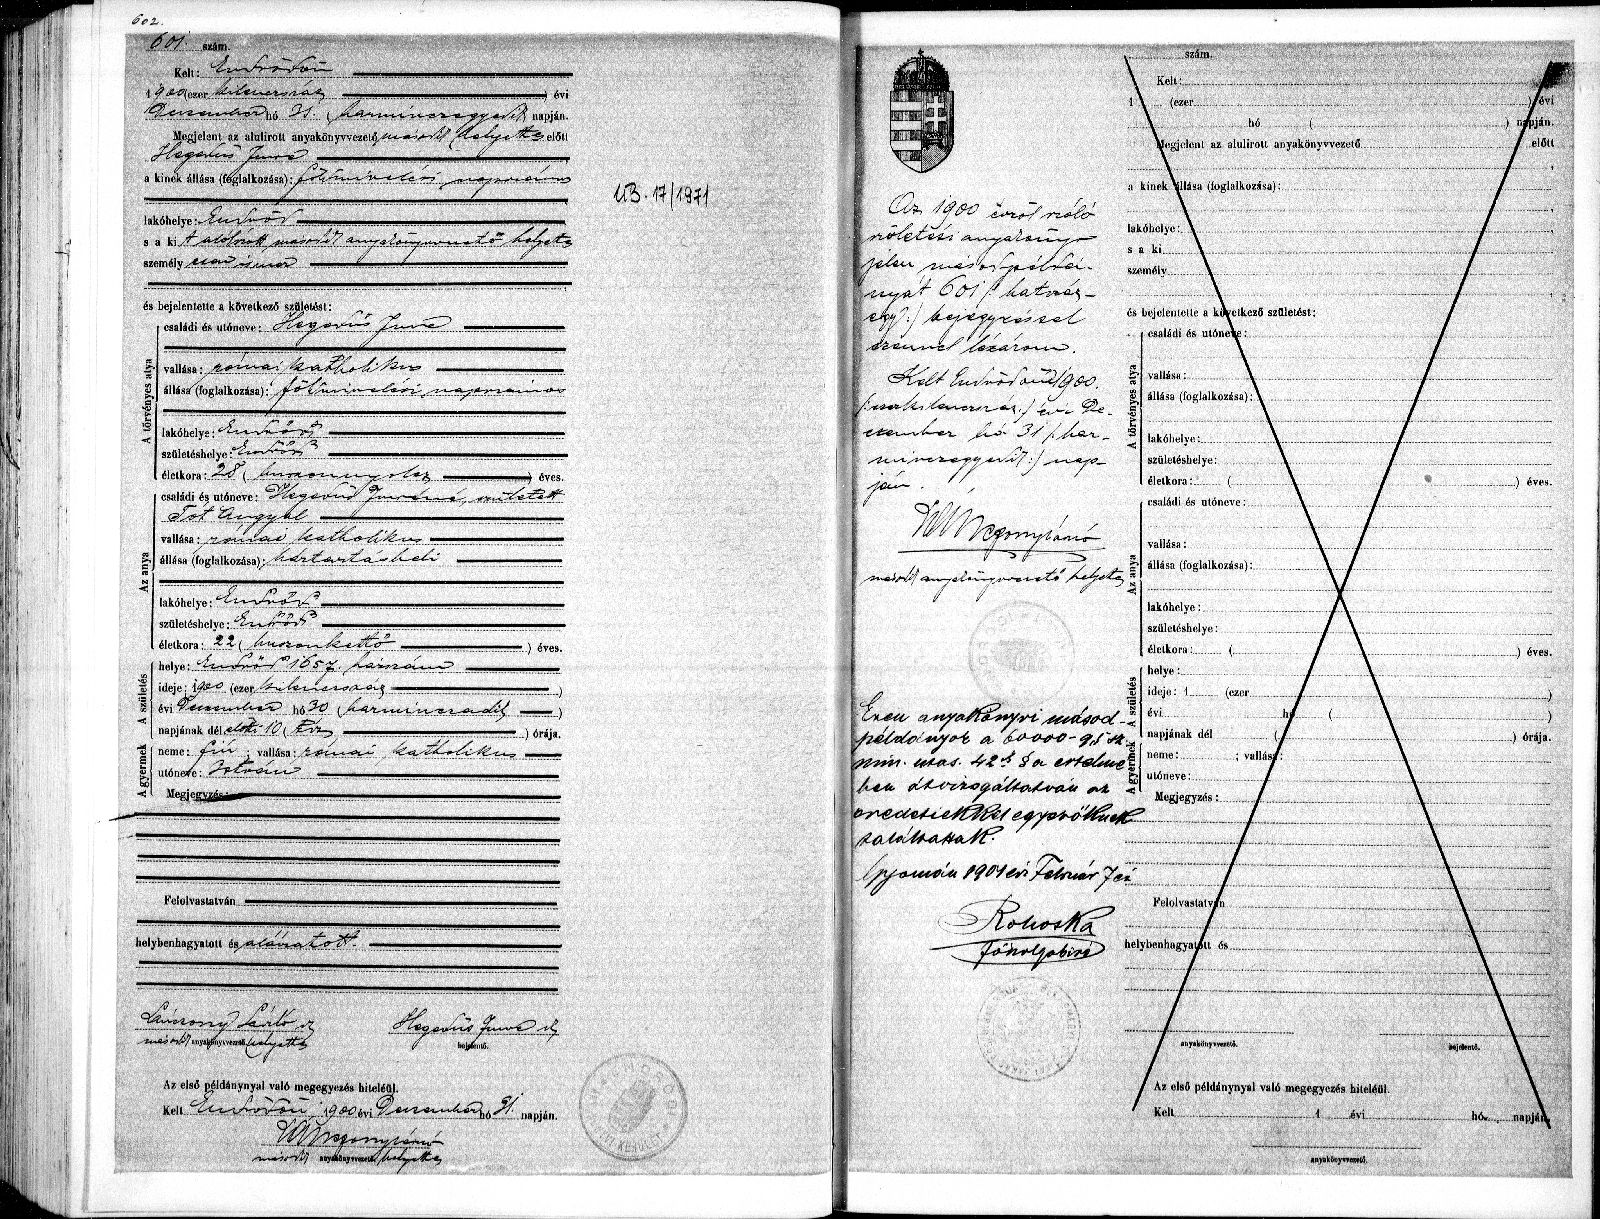 602.
601. szám.
Kelt: Endrődön
1900 (ezer kilencszáz ) évi
December hó 31. ( harminczegyedik ) napján.
Megjelent az alulirott anyakönyvvezető, második helyettes előtt
Hegedüs Imre
a kinek állása (foglalkozása): földmivelési napszámos
lakóhelye: Endrőd
s a ki A alólirott második anyakönyvvezető helyettes
személyesen ismer
és bejelentette a következő születést:
A törvényes atya
családi és utóneve: Hegedüs Imre
vallása: római katholikus
állása (foglalkozása): földmivelési napszámos
lakóhelye: Endrőd
születéshelye: Endrőd
életkora: 28 ( huszonnyolcz ) éves.
Az anya
családi és utóneve: Hegedüs Imréné, született
Tot Angyal
vallása: római katholikus
állása (foglalkozása): háztartásbeli
lakóhelye: Endrőd
születéshelye: Endrőd
életkora: 22 ( huszonkettő ) éves.
A születés
helye: Endrőd 1657. házszám
ideje: 1900 (ezer kilencszáz )
évi December hó 30 ( harminczadik )
napjának dél előtti 10 ( tiz ) órája.
A gyermek
neme: fiú ; vallása: római katholikus
utóneve: István
Megjegyzés:
Felolvastatván
helybenhagyatott és aláiratott.
Hegedüs Imre
második anyakönyvvezető helyettes
bejelentő.
Az első példánynyal való megegyezés hiteléül.
Kelt Endrődön, 1900 évi December hó 31. napján.
második anyakönyvvezető helyettes
UB. 17/1971
Az 1900 évről szóló
születési anyakönyv
jelen másodpéldá-
nyát 601 /: hatszáz-
egy :/ bejegyzéssel
ezennel lezárom.
Kelt Endrődön 1900.
/: ezerkilenczszáz :/ évi De-
czember hó 31 /: har-
minczegyedik :/ nap-
ján.
második anyakönyvvezető helyettes
Ezen anyakönyvi másod-
példányok a 60000-95 sz.
min. utas. 42 § §a értelmé-
ben átvizsgáltatván az
eredetiekkel egyezőknek
találtattak.
Gyomán 1901 évi Február 7én
Rohoska
főszolgabiró
szám.
Kelt:
1 (ezer ) évi
hó ( ) napján.
Megjelent az alulirott anyakönyvvezető előtt
a kinek állása (foglalkozása):
lakóhelye:
s a ki
személy
és bejelentette a következő születést:
A törvényes atya
családi és utóneve:
vallása:
állása (foglalkozása):
lakóhelye:
születéshelye:
életkora: ( ) éves.
Az anya
családi és utóneve:
vallása:
állása (foglalkozása):
lakóhelye:
születéshelye:
életkora: ( ) éves.
A születés
helye:
ideje: 1 (ezer )
évi hó ( )
napjának dél ( ) órája.
A gyermek
neme: ; vallása:
utóneve:
Megjegyzés:
Felolvastatván
helybenhagyatott és
anyakönyvvezető.
bejelentő.
Az első példánynyal való megegyezés hiteléül.
Kelt 1 évi hó napján.
anyakönyvvezető.